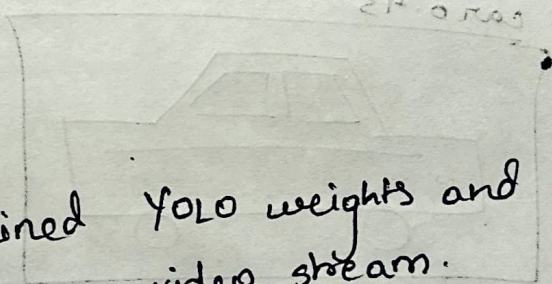 ined YOLO weights and
video stream.